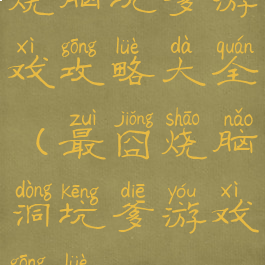 烧脑坑爹游
xì gōng lüè dà quán
戏攻略大全
zuì jiǒng shāo nǎo
(最囧烧脑
dòng kēng diē yóu xì
洞坑爹游戏
gōng lüè